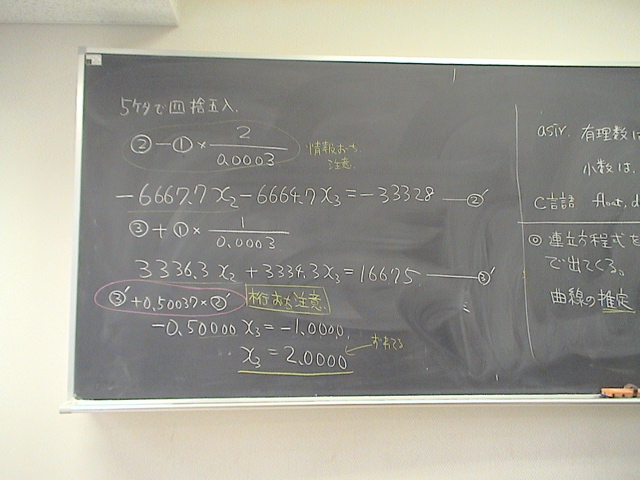 5ケタで四捨五入.
②-①× 2/0.0003
情報おち 注意.
-6667.7x₂-6664.7x₃=-33328 ―②′
③+①× 1/0.0003
3336.3x₂+3334.3x₃=16675 ―③′
③′+0.50037×②′ 桁おち注意.
-0.50000x₃=-1.0000
x₃=2.0000
asir. 有理数は
小数は.
C言語 float, d
◎ 連立方程式を
で出てくる。
曲線の推定